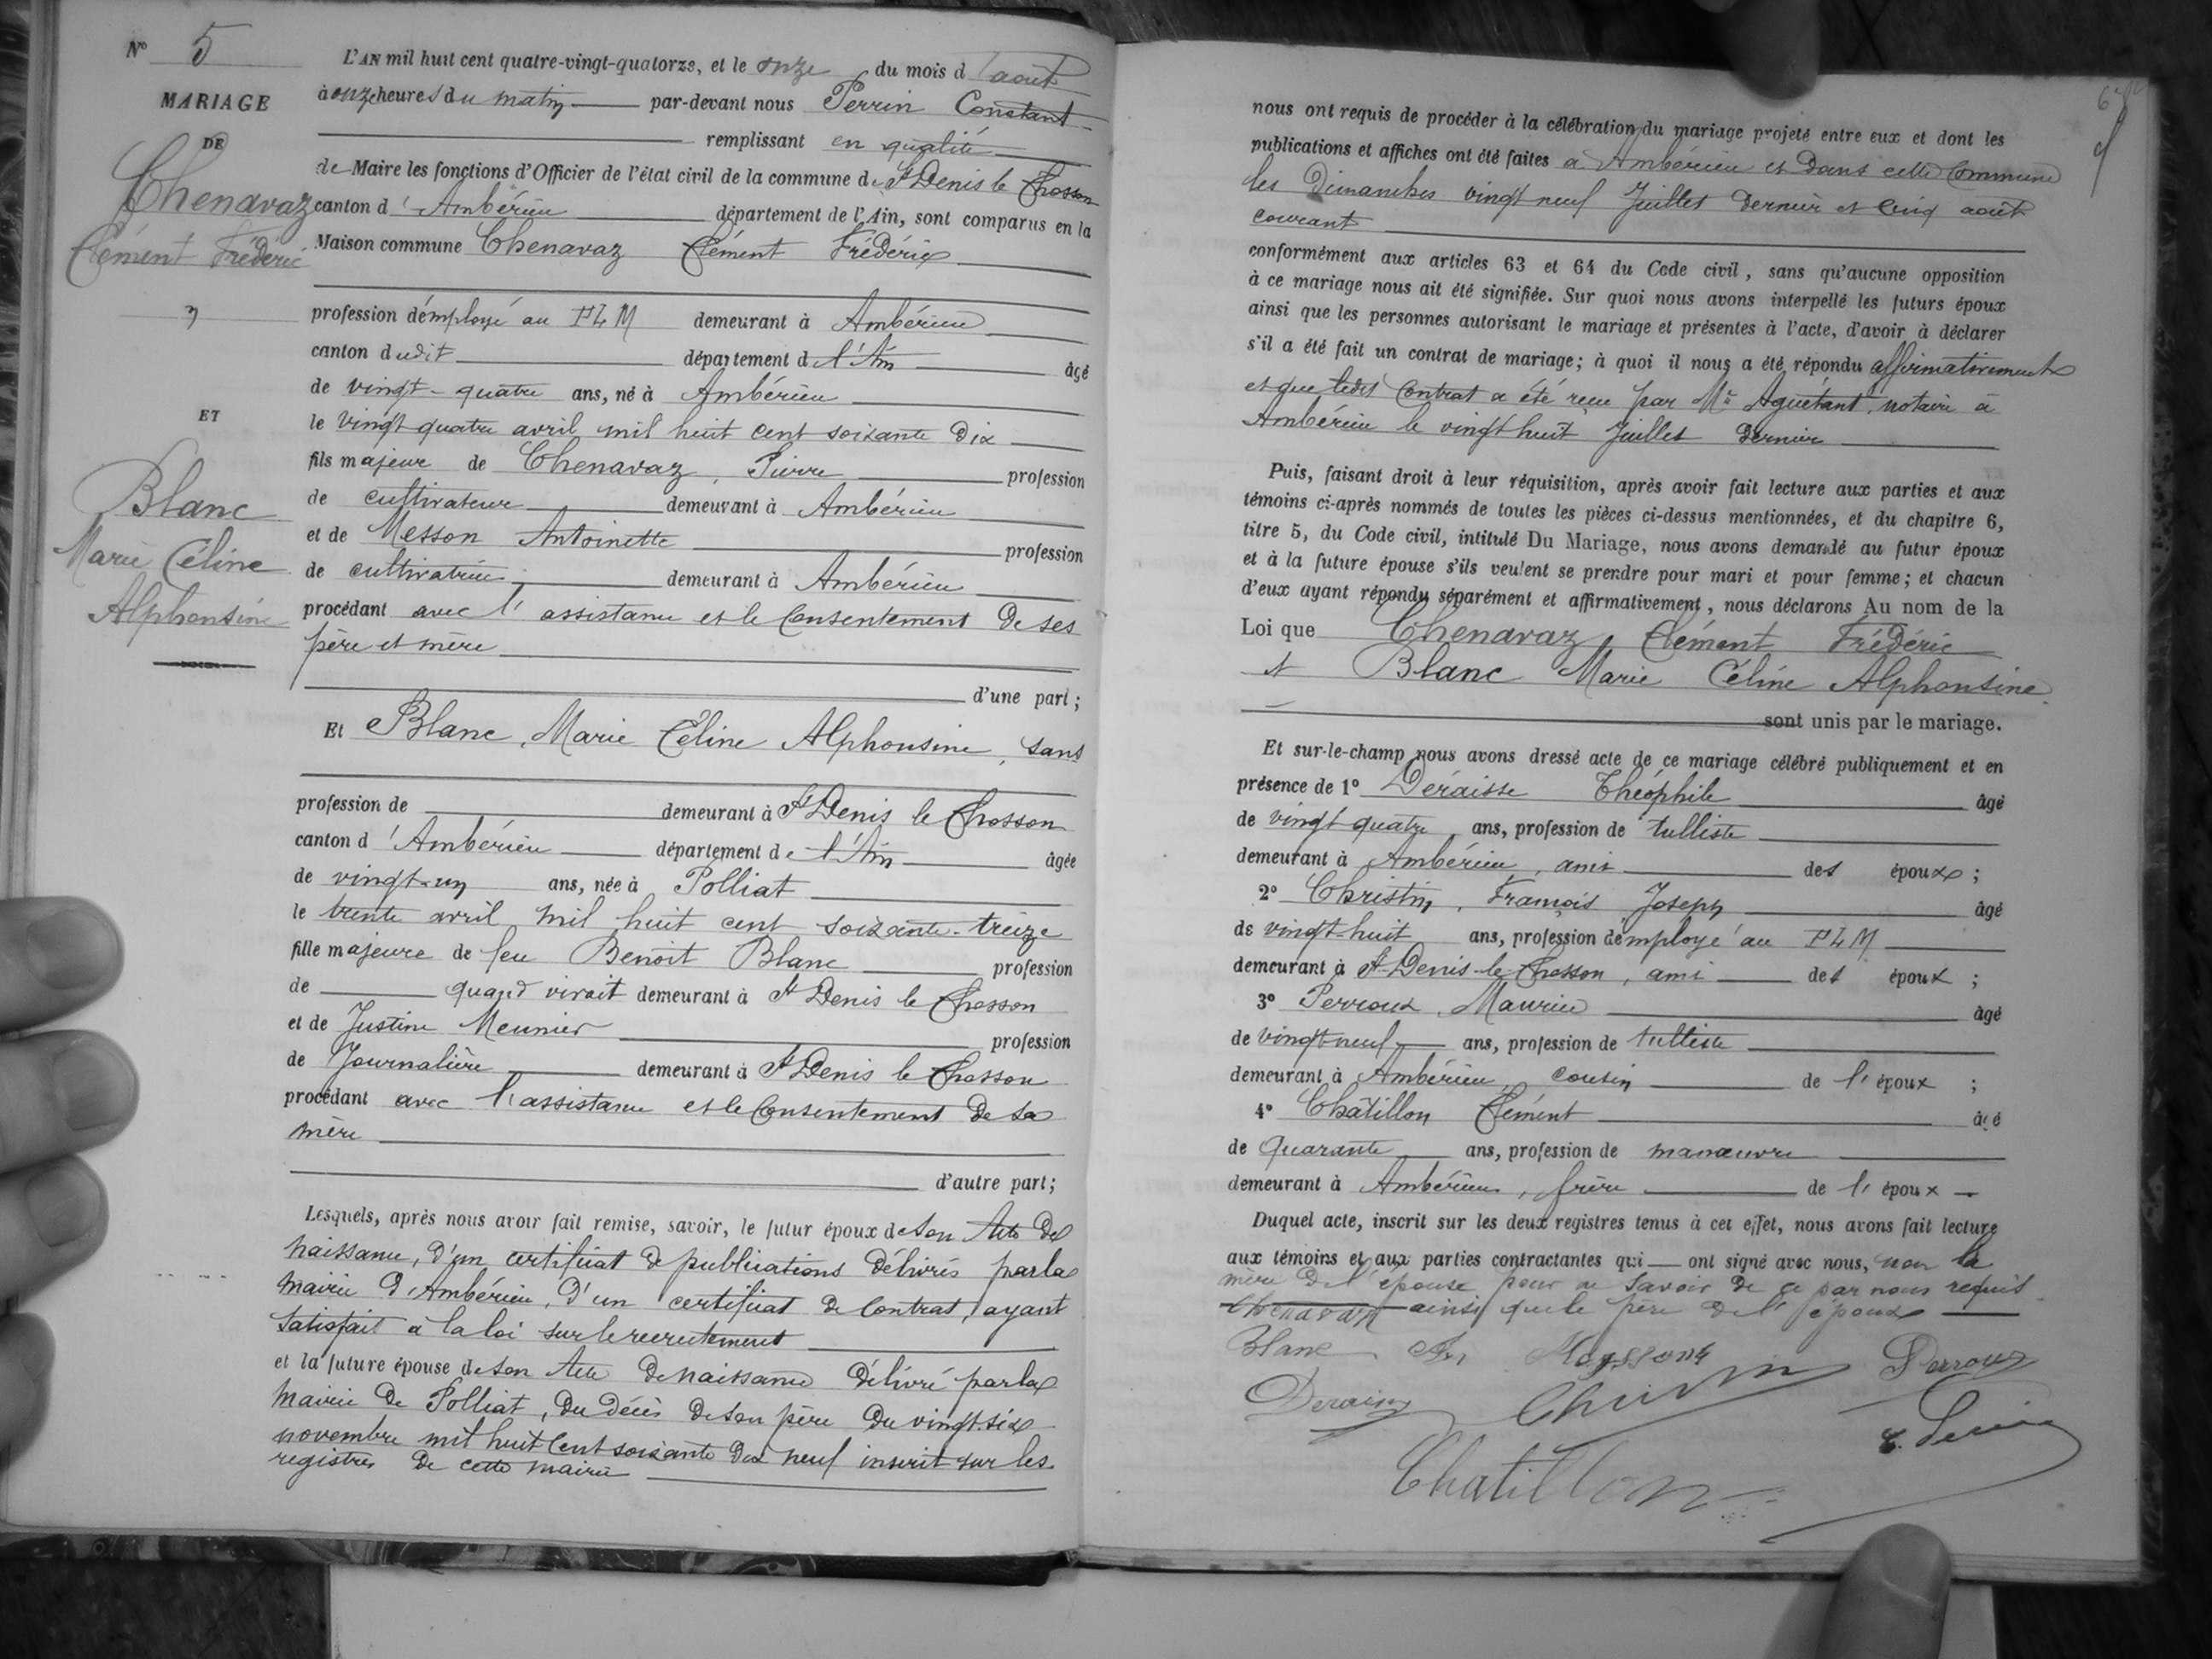 N° 5
MARIAGE
DE
Chenavaz
Clément Frédéric
ET
Blanc
Marie Céline
Alphonsine
L'AN mil huit cent quatre-vingt-quatorze, et le onze du mois d'août
à onze heures du matin par-devant nous Perrin Constant
remplissant en qualité
de Maire les fonctions d'Officier de l'état civil de la commune de St Denis le Chosson
canton d'Ambérieu département de l'Ain, sont comparus en la
Maison commune Chenavaz Clément Frédéric
profession d'employé au PLM demeurant à Ambérieu
canton dudit département de l'Ain âgé
de vingt-quatre ans, né à Ambérieu
le vingt quatre avril mil huit cent soixante dix
fils majeur de Chenavaz, Pierre profession
de cultivateur demeurant à Ambérieu
et de Messon Antoinette profession
de cultivatrice demeurant à Ambérieu
procédant avec l'assistance et le consentement de ses
père et mère
d'une part;
Et Blanc, Marie Céline Alphonsine, sans
profession de demeurant à St Denis le Chosson
canton d'Ambérieu département de l'Ain âgée
de vingt-un ans, née à Polliat
le trente avril mil huit cent soixante-treize
fille majeure de feu Benoit Blanc profession
de quand vivait demeurant à St Denis le Chosson
et de Justine Meunier profession
de Journalière demeurant à St Denis le Chosson
procédant avec l'assistance et le consentement de sa
mère
d'autre part;
Lesquels, après nous avoir fait remise, savoir, le futur époux de son Acte de
naissance, d'un certificat de publications délivrés par la
mairie d'Ambérieu, d'un certificat de contrat, ayant
satisfait à la loi sur le recrutement
et la future épouse de son Acte de naissance délivré par la
mairie de Polliat, du décès de son père du vingt-six
novembre mil huit cent soixante dix neuf inscrit sur les
registres de cette mairie
nous ont requis de procéder à la célébration du mariage projeté entre eux et dont les
publications et affiches ont été faites à Ambérieu et dans cette commune
les Dimanches vingt neuf Juillet dernier et cinq août
courant
conformément aux articles 63 et 64 du Code civil, sans qu'aucune opposition
à ce mariage nous ait été signifiée. Sur quoi nous avons interpellé les futurs époux
ainsi que les personnes autorisant le mariage et présentes à l'acte, d'avoir à déclarer
s'il a été fait un contrat de mariage; à quoi il nous a été répondu affirmativement
et que ledit contrat a été reçu par Me Aguétant, notaire à
Ambérieu le vingt huit Juillet dernier
Puis, faisant droit à leur réquisition, après avoir fait lecture aux parties et aux
témoins ci-après nommés de toutes les pièces ci-dessus mentionnées, et du chapitre 6,
titre 5, du Code civil, intitulé Du Mariage, nous avons demandé au futur époux
et à la future épouse s'ils veulent se prendre pour mari et pour femme; et chacun
d'eux ayant répondu séparément et affirmativement, nous déclarons Au nom de la
Loi que Chenavaz Clément Frédéric
et Blanc Marie Céline Alphonsine
sont unis par le mariage.
Et sur-le-champ nous avons dressé acte de ce mariage célébré publiquement et en
présence de 1° Deraisse Théophile âgé
de vingt quatre ans, profession de tulliste
demeurant à Ambérieu, ami des époux;
2° Christin, François Joseph âgé
de vingt-huit ans, profession d'employé au PLM
demeurant à St-Denis-le-Chosson, ami des époux;
3° Perroux, Maurice âgé
de vingt neuf ans, profession de tulliste
demeurant à Ambérieu, cousin de l'époux;
4° Châtillon Clément âgé
de quarante ans, profession de manœuvre
demeurant à Ambérieu, frère de l'époux
Duquel acte, inscrit sur les deux registres tenus à cet effet, nous avons fait lecture
aux témoins et aux parties contractantes qui ont signé avec nous, non la
mère de l'épouse pour ne savoir de ce par nous requis
Chenavaz ainsi que le père de l'époux
Blanc Perroux
Chatillon